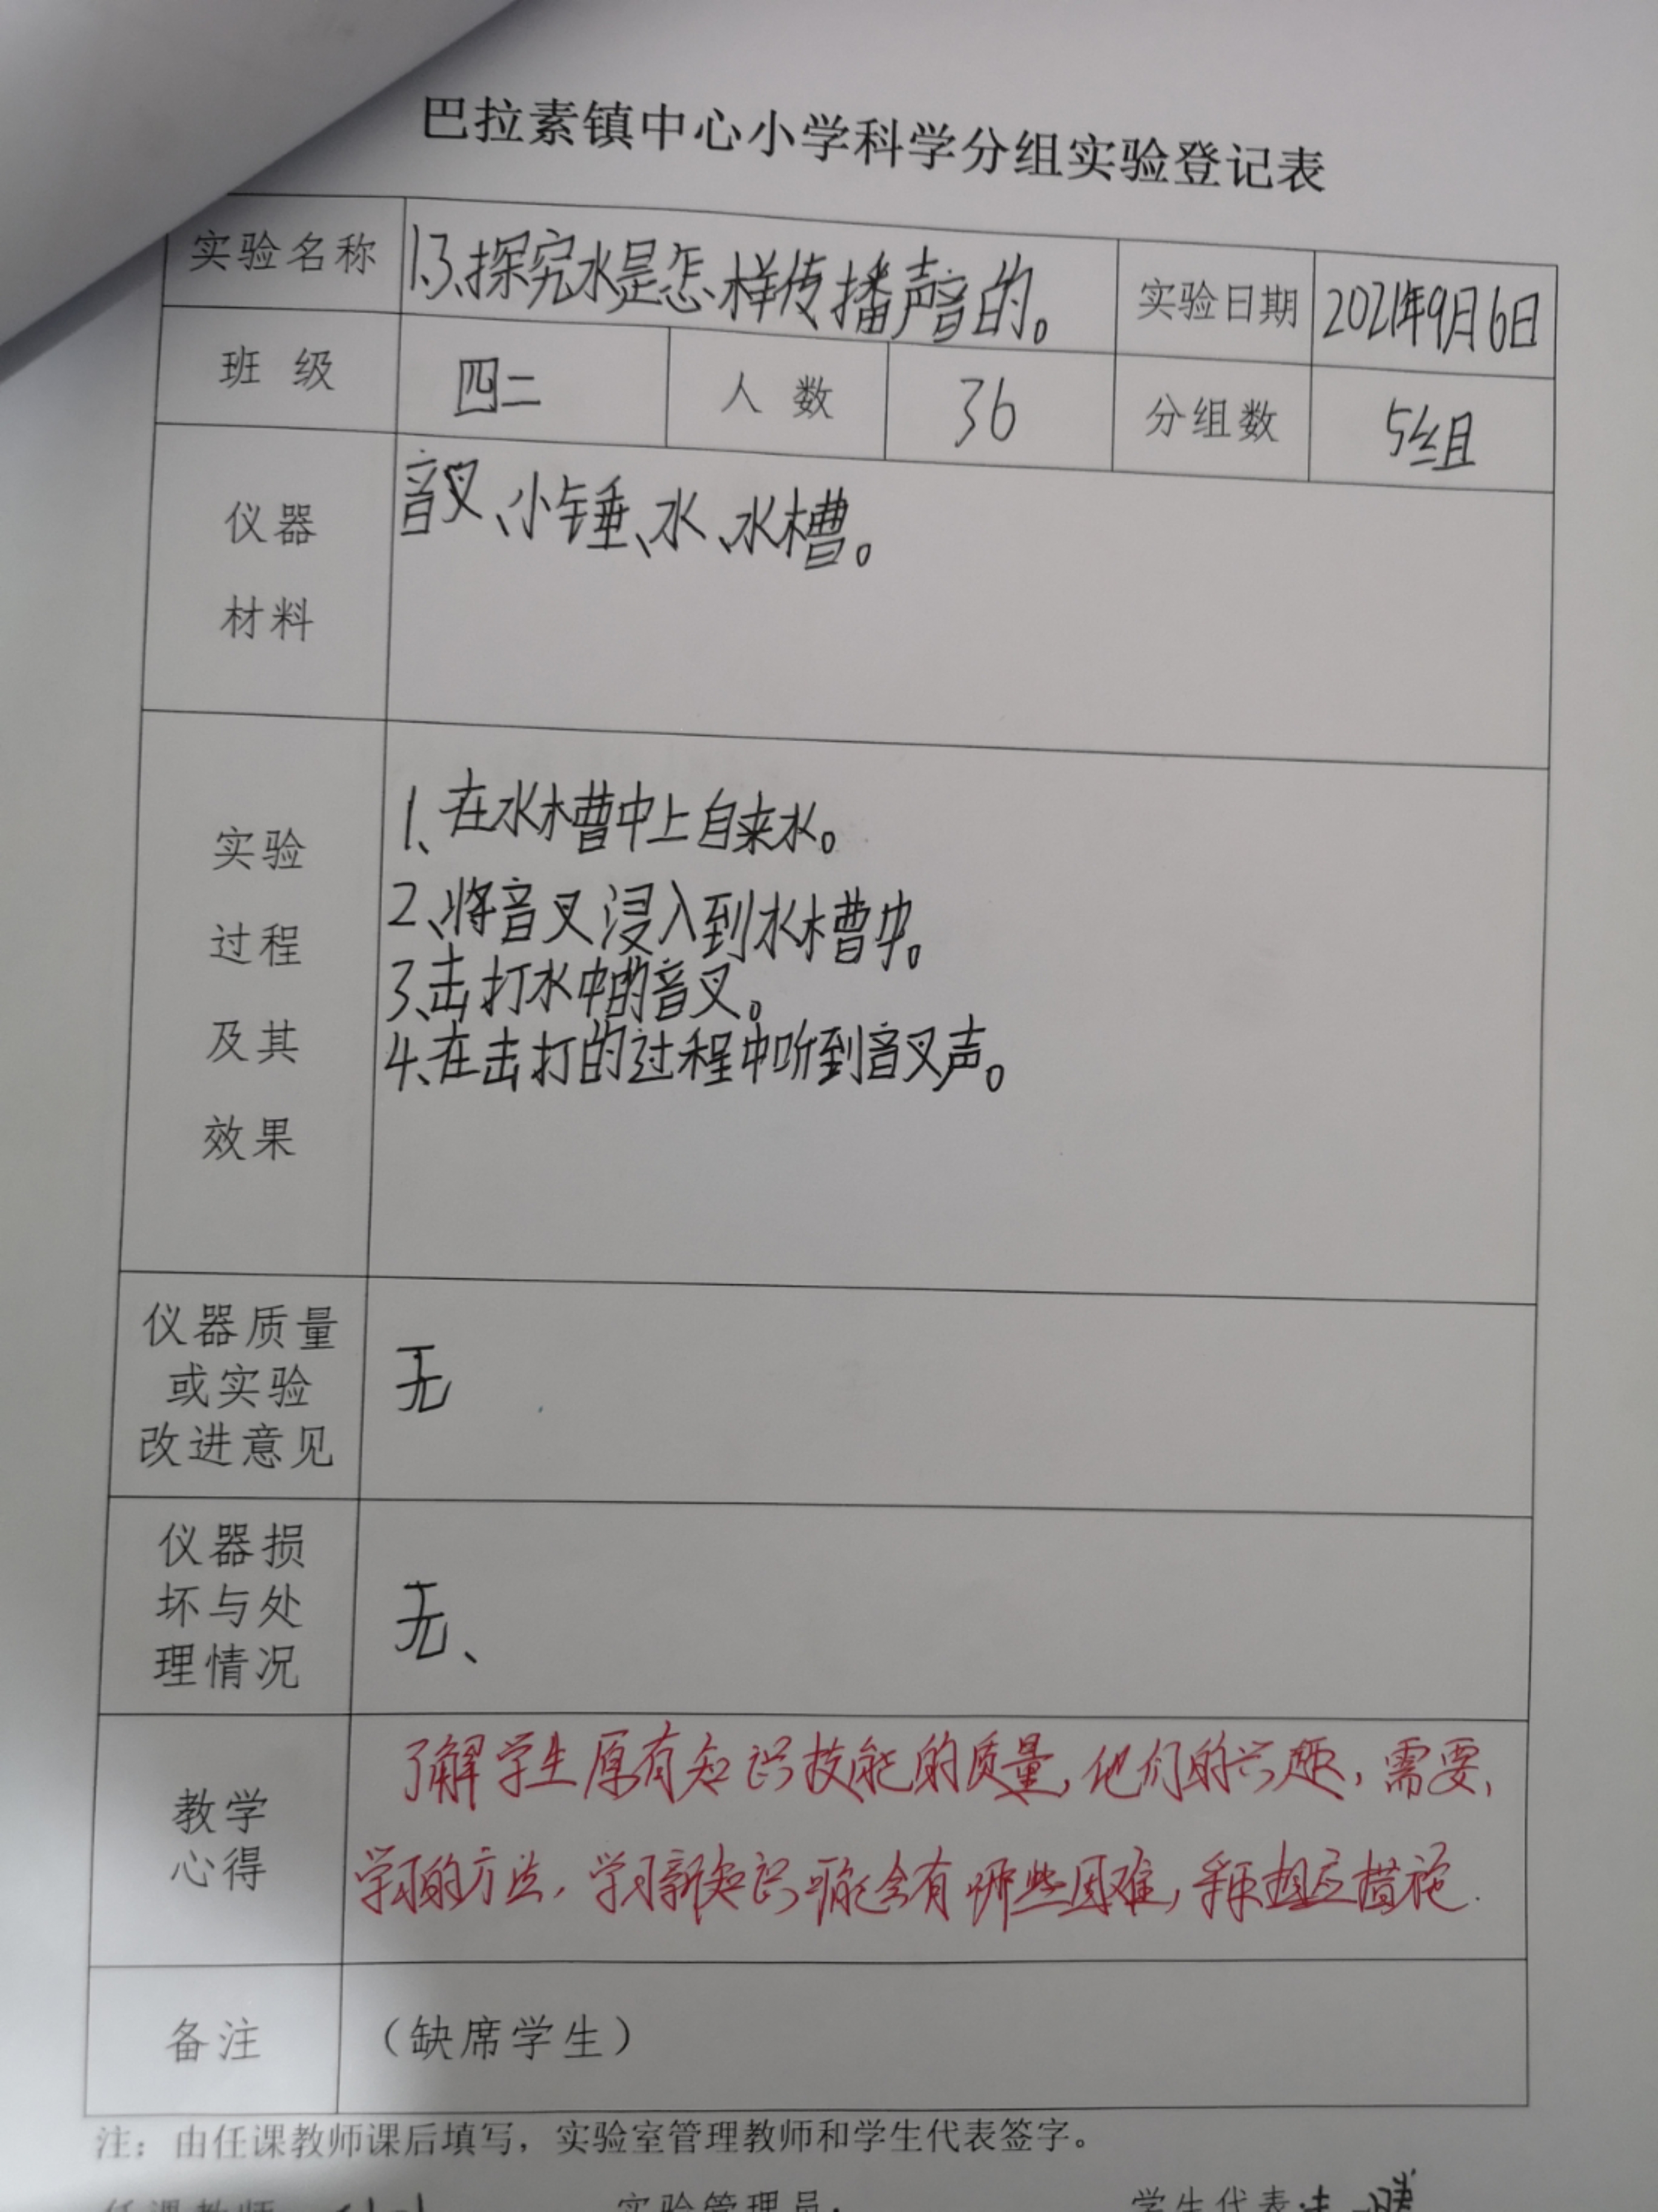 巴拉素镇中心小学科学分组实验登记表
实验名称 1.3、探究水是怎样传播声音的。 实验日期 2021年9月6日
班级 四二 人数 36 分组数 5组
仪器 音叉、小锤、水、水槽。
材料
实验 1、在水槽中上自来水。
过程 2、将音叉浸入到水槽中。
3、击打水中的音叉。
及其 4、在击打的过程中听到音叉声。
效果
仪器质量
或实验 无
改进意见
仪器损
坏与处 无、
理情况
教学 了解学生原有知识技能的质量,他们的兴趣,需要,
心得 学习的方法,学习新知识可能会有哪些困难,采取相应措施.
备注 (缺席学生)
注:由任课教师课后填写,实验室管理教师和学生代表签字。
任课教师 实验管理员: 学生代表: